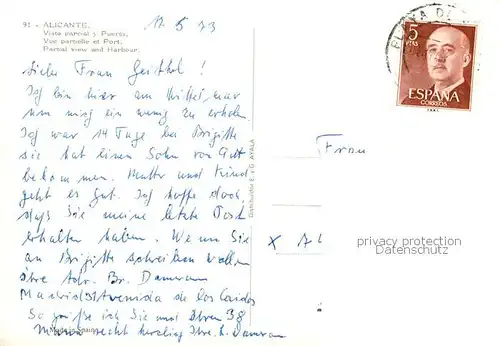 91 - ALICANTE.
Vista parcial y Puerto.
Vue partielle et Port.
Partial view and Harbour.
17.5.73
PLAYA DE
5
PTAS
ESPAÑA
CORREOS
Liebe Frau
Ich bin hier am
um mich ein wenig zu erholen.
Ich war 14 Tage bei Brigitte
sie hat einen Sohn von Gott
bekommen. Mutter und Kind
geht es gut. Ich hoffe doch
daß Sie meine letzte Post
erhalten haben. Wenn Sie
an Brigitte schreiben wollen
ihre Adr. Br. Damran
Madrid 31 Avenida de los Caidos
So grüße ich Sie und Ihren 38
recht herzlich Ihre L. Damran
Frau
x A
privacy protection
Datenschutz